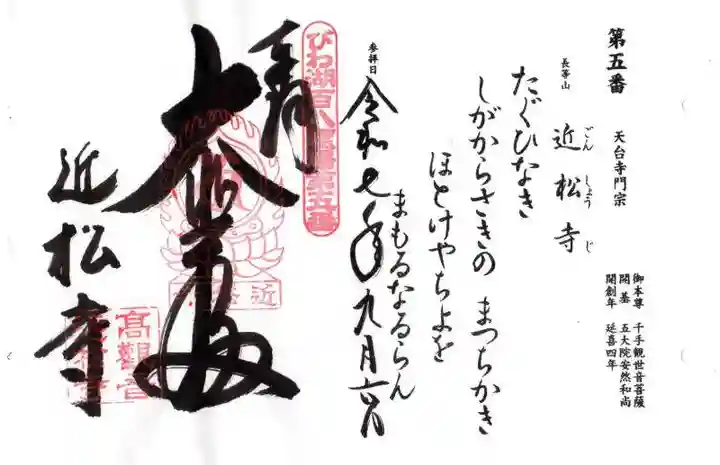 第五番
天台寺門宗
長等山
近松寺
ごんしょうじ
御本尊 千手観世音菩薩
開基 五大院安然和尚
開創年 延喜四年
たぐひなき
しがからさきの まつちかき
ほとけやちよを
まもるなるらん
参拝日
令和七年九月六日
びわ湖百八霊場第五番
奉拝
大悲殿
近松寺
高觀音